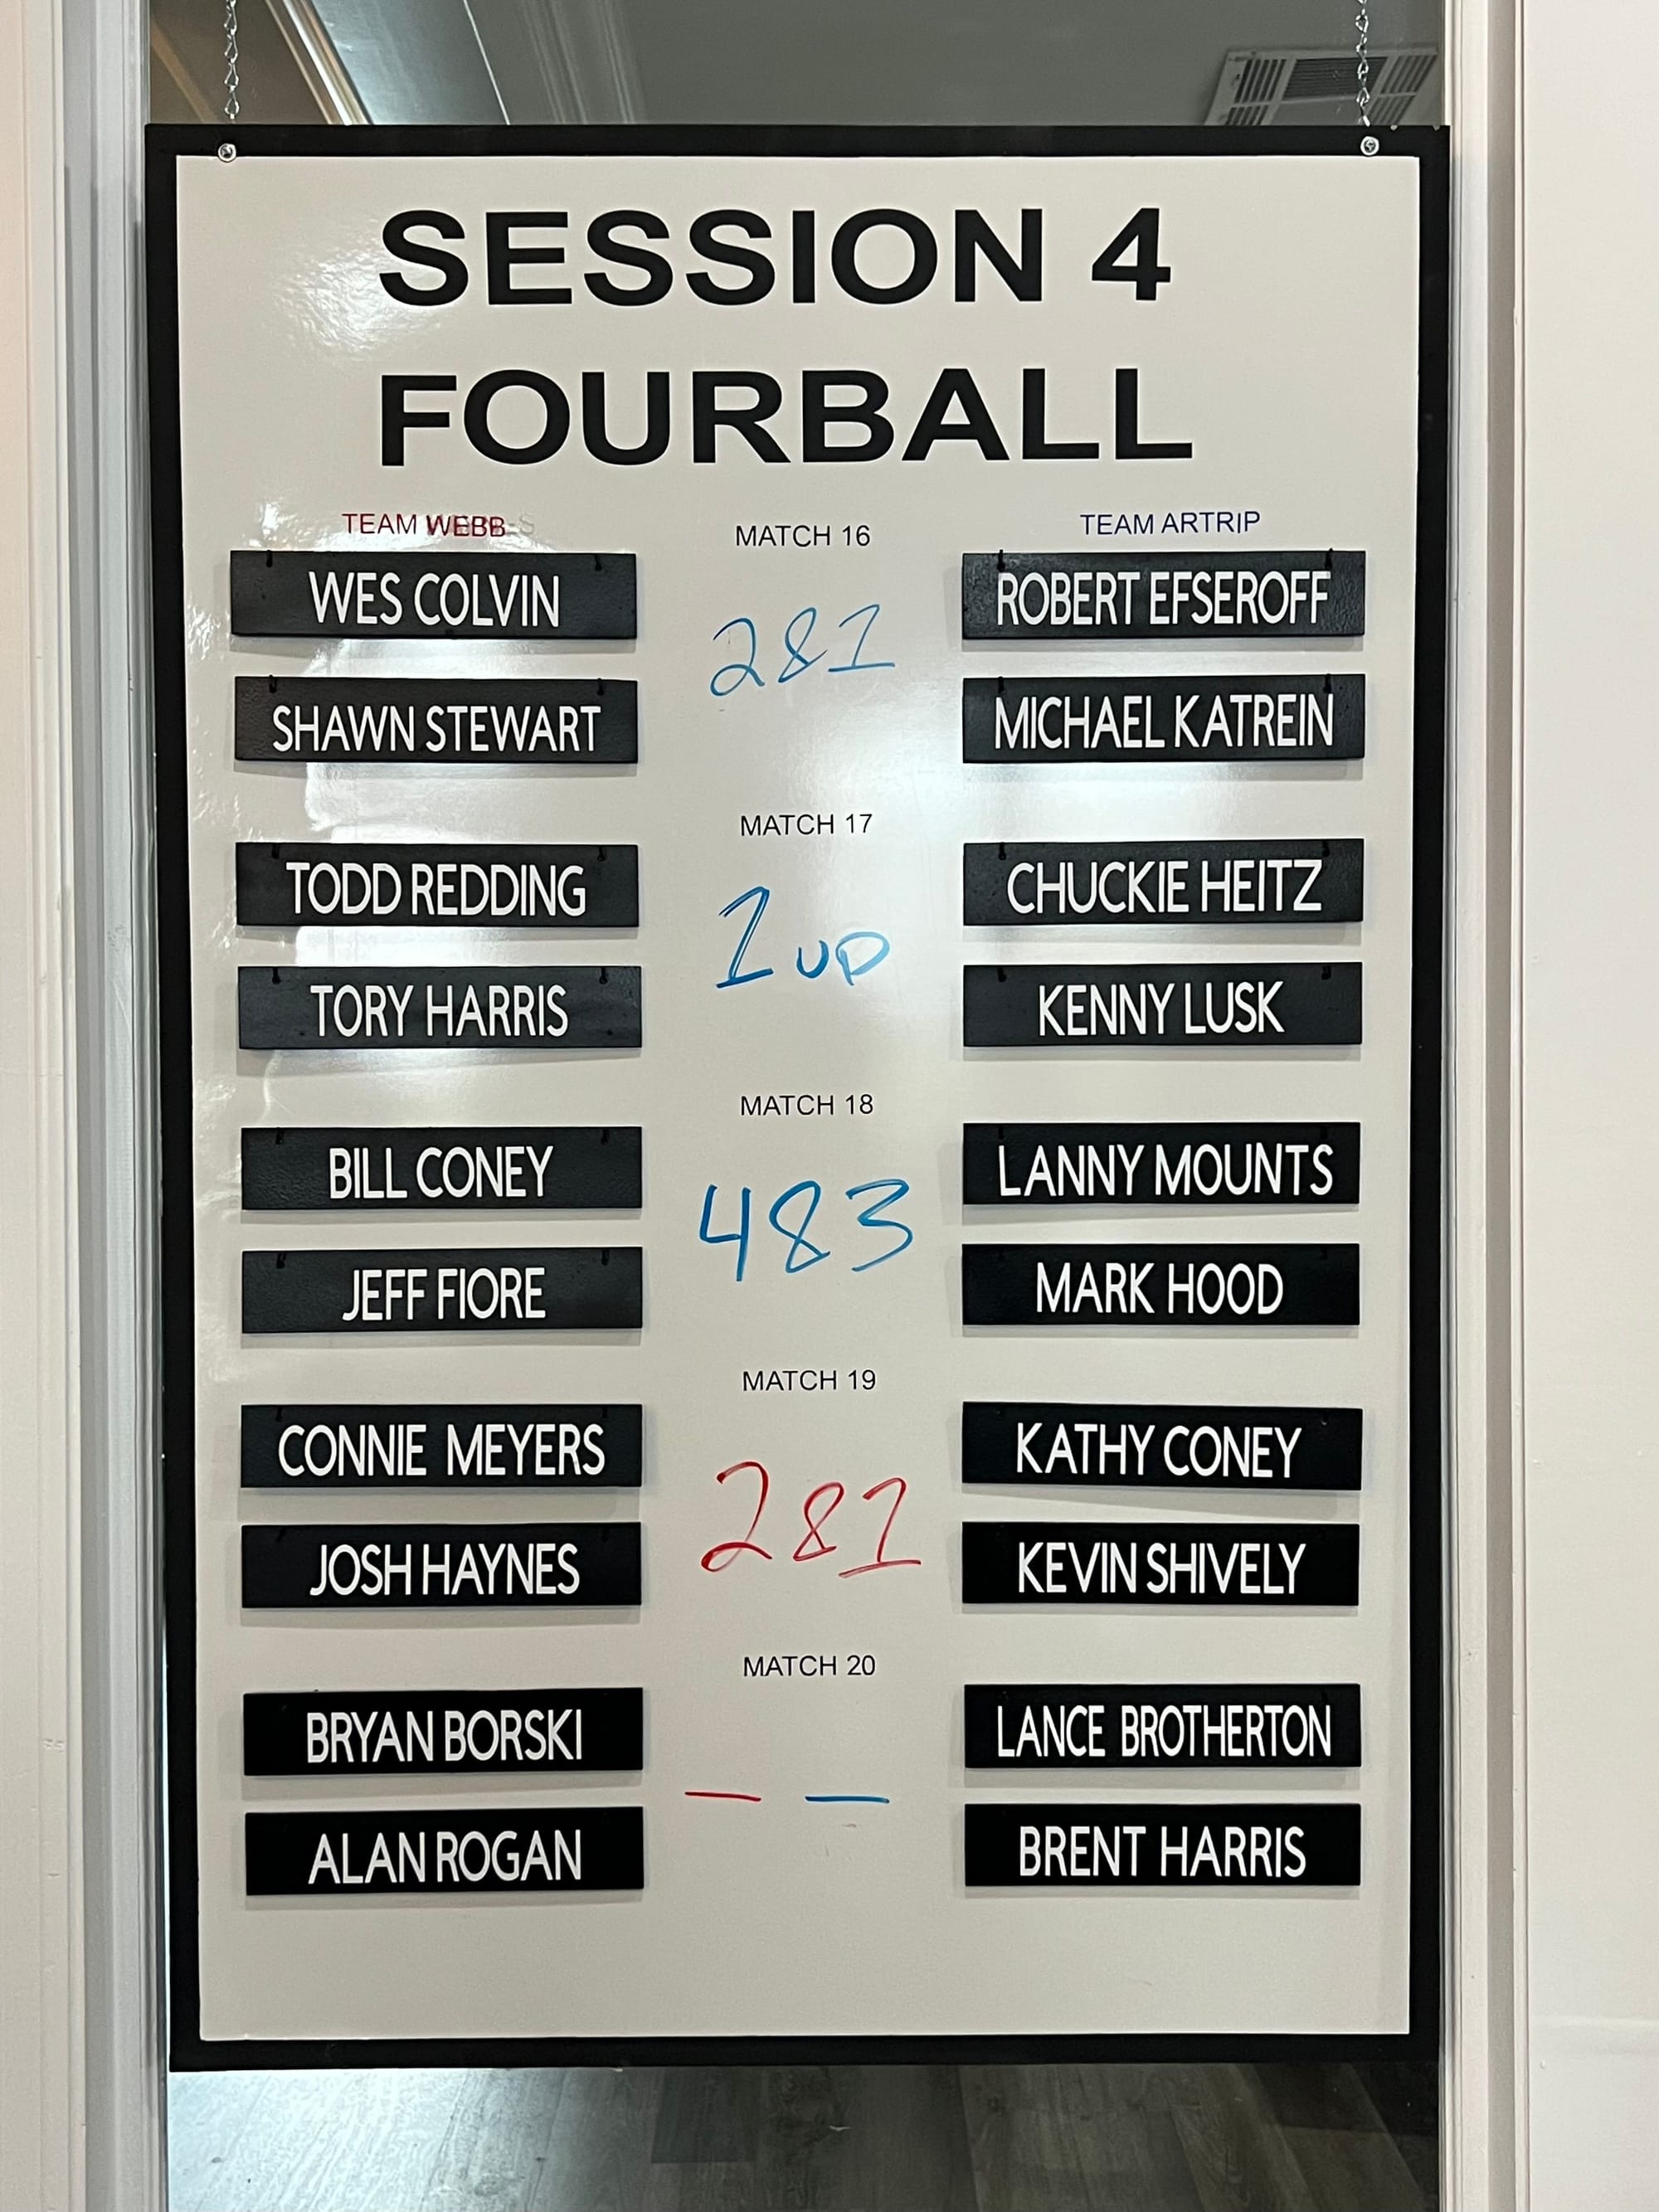 SESSION 4
FOURBALL
TEAM WEBB
MATCH 16
TEAM ARTRIP
WES COLVIN
ROBERT EFSEROFF
2&1
SHAWN STEWART
MICHAEL KATREIN
MATCH 17
TODD REDDING
CHUCKIE HEITZ
1 UP
TORY HARRIS
KENNY LUSK
MATCH 18
BILL CONEY
LANNY MOUNTS
4&3
JEFF FIORE
MARK HOOD
MATCH 19
CONNIE MEYERS
KATHY CONEY
2&1
JOSH HAYNES
KEVIN SHIVELY
MATCH 20
BRYAN BORSKI
LANCE BROTHERTON
— —
ALAN ROGAN
BRENT HARRIS